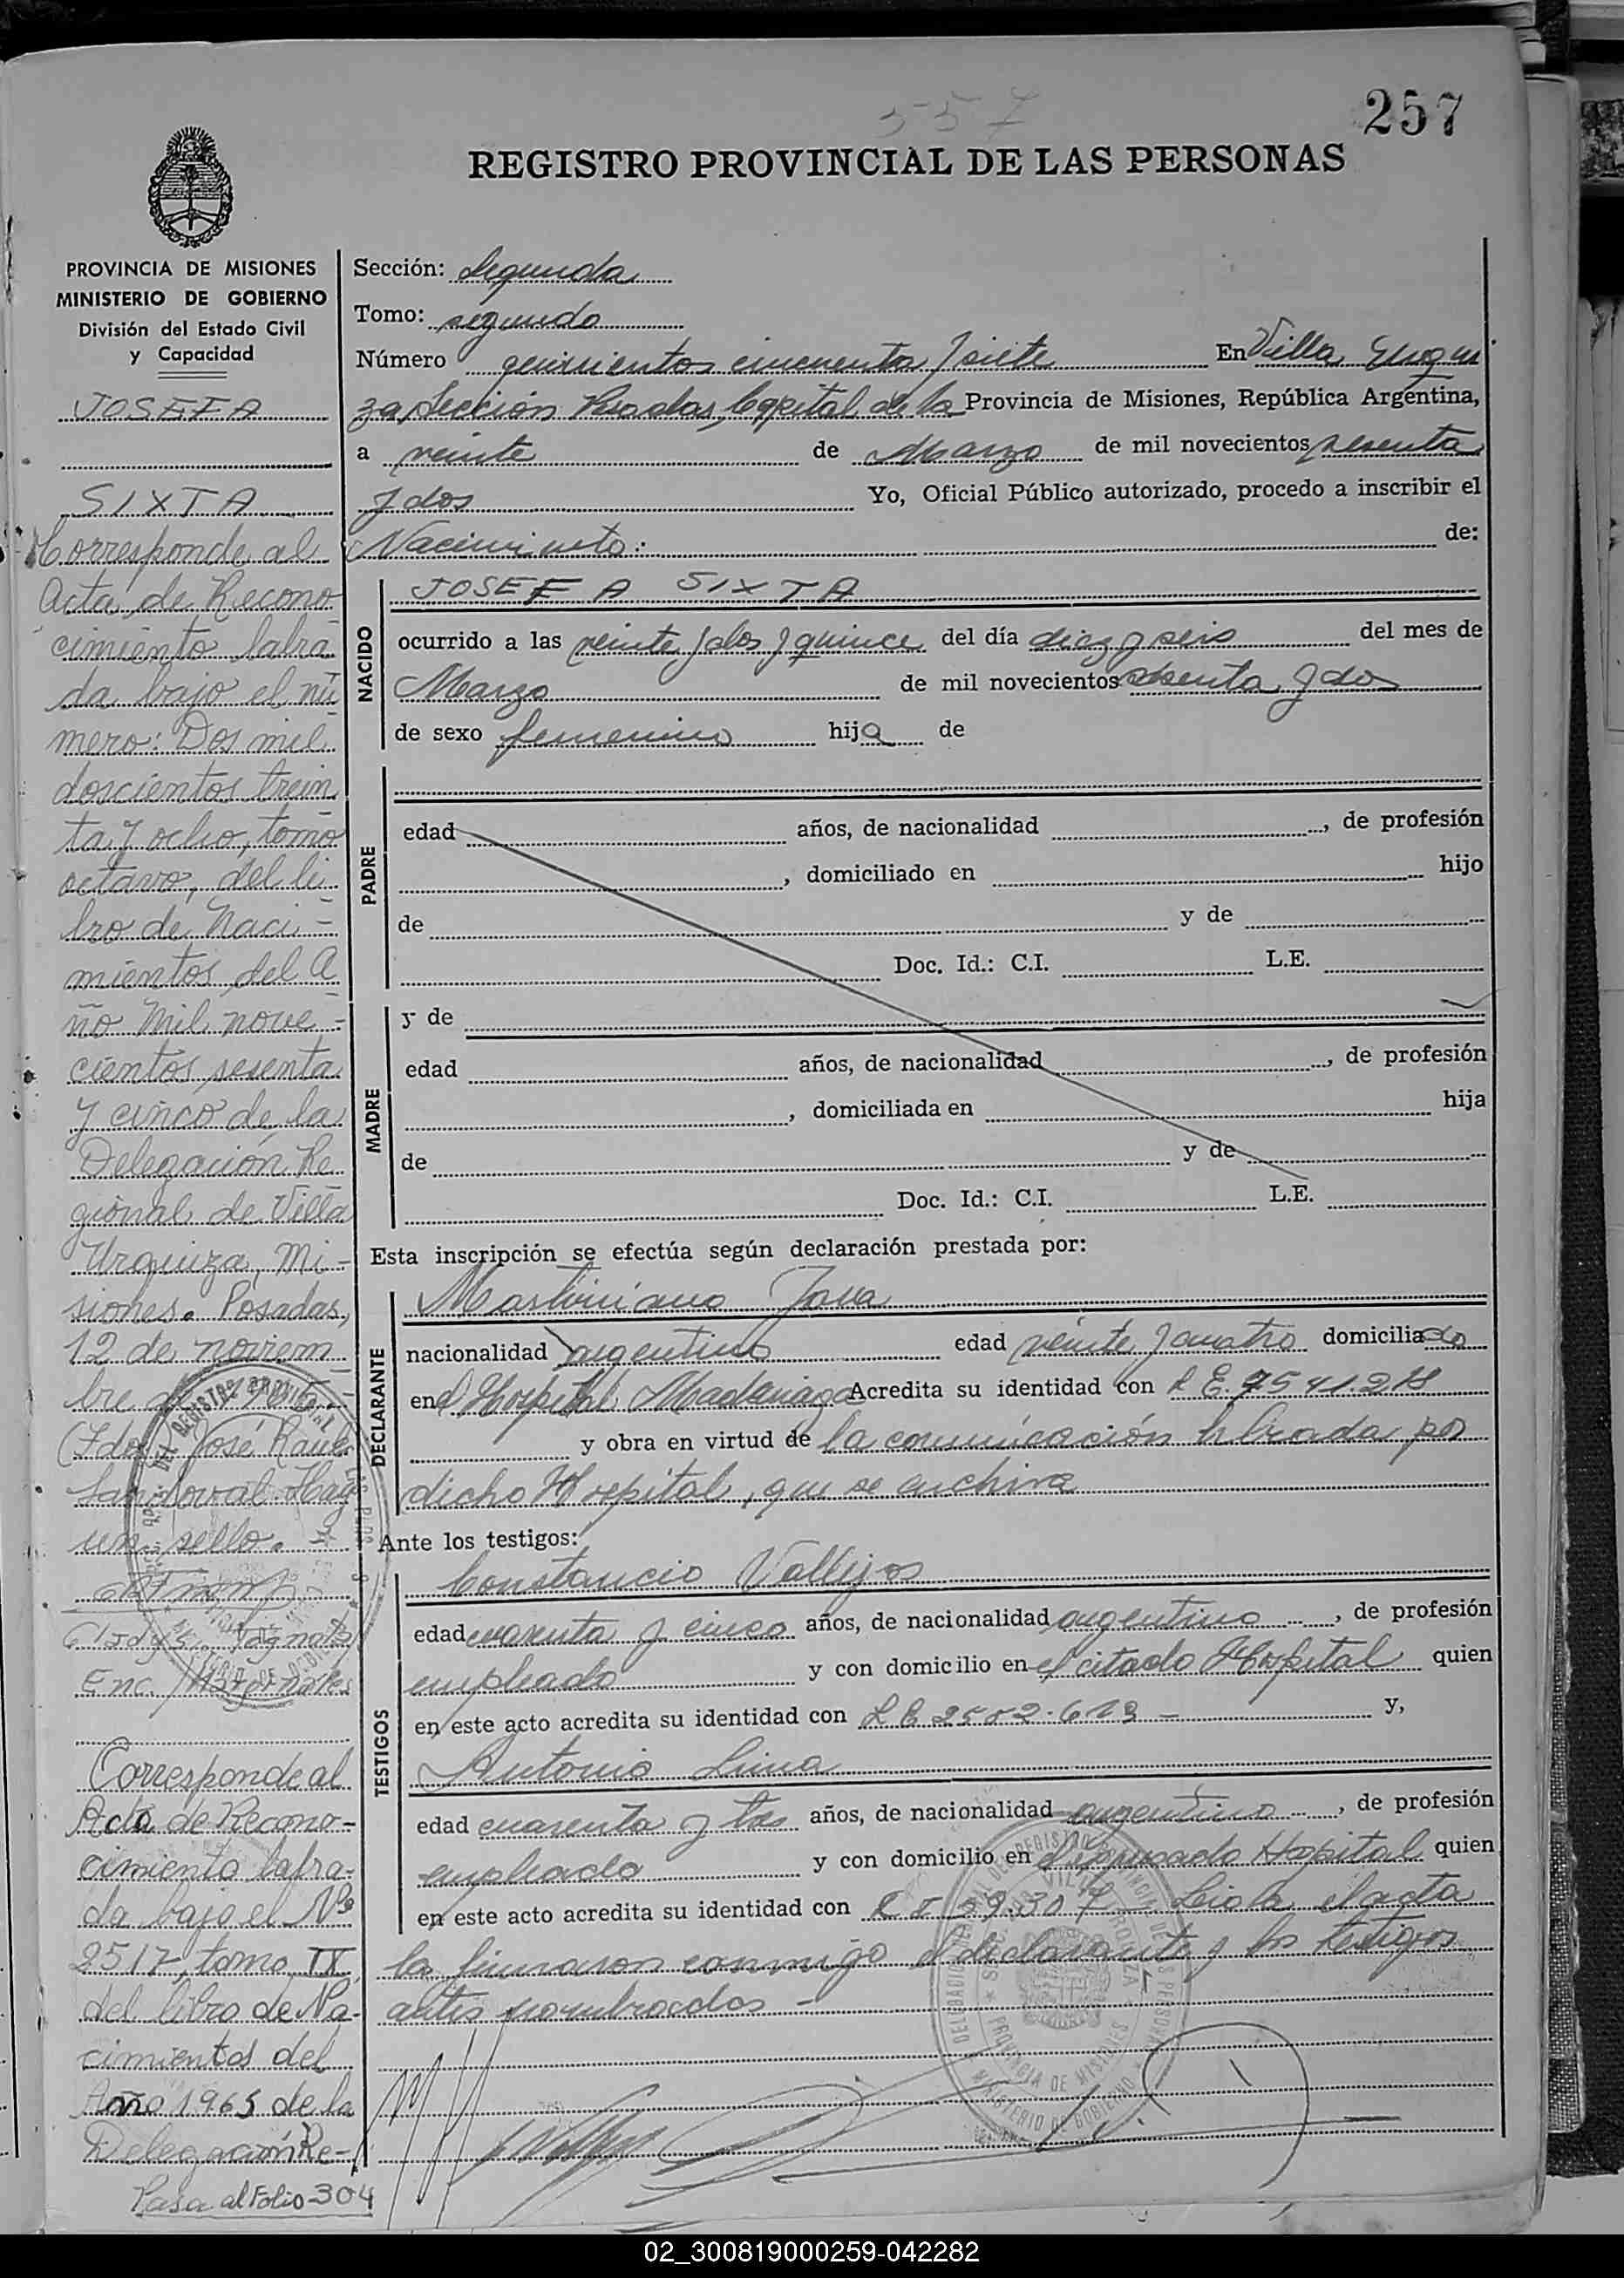 257
557
REGISTRO PROVINCIAL DE LAS PERSONAS
PROVINCIA DE MISIONES
MINISTERIO DE GOBIERNO
División del Estado Civil
y Capacidad
JOSEFA
SIXTA
Corresponde al
Acta de Recono
cimiento labra
da bajo el nú
mero: Dos mil
doscientos trein
ta y ocho, tomo
octavo, del li
bro de Naci-
mientos del A
ño Mil nove-
cientos sesenta
y cinco de la
Delegación Re
gional de Villa
Urquiza, Mi-
siones. Posadas,
12 de noviem
bre de
(Fdo) José Raúl
Sandoval. Hay
un sello.-
Gladys
Enc. Marginales
Corresponde al
Acta de Recono-
cimiento labra-
da bajo el Nº
2517, tomo IX
del libro de Na-
cimientos del
Año 1965 de la
Delegación Re-
Pasa al Folio-304
Sección: Segunda
Tomo: segundo
Número quinientos cincuenta y siete En Villa Urqui
za, Sección Posadas, Capital de la Provincia de Misiones, República Argentina,
a veinte de Marzo de mil novecientos sesenta
y dos Yo, Oficial Público autorizado, procedo a inscribir el
Nacimiento: de:
NACIDO
JOSEFA SIXTA
ocurrido a las veinte y dos y quince del día diez y seis del mes de
Marzo de mil novecientos sesenta y dos
de sexo femenino hija de
PADRE
edad años, de nacionalidad , de profesión
, domiciliado en hijo
de y de
Doc. Id.: C.I. L.E.
MADRE
y de
edad años, de nacionalidad , de profesión
, domiciliada en hija
de y de
Doc. Id.: C.I. L.E.
Esta inscripción se efectúa según declaración prestada por:
DECLARANTE
Martiniano
nacionalidad argentino edad veinte y cuatro domiciliado
en el Hospital Madariaga Acredita su identidad con L E. 7541.218
y obra en virtud de la comunicación librada por
dicho Hospital, que se archiva
Ante los testigos:
TESTIGOS
Constancio Vallejos
edad cuarenta y cinco años, de nacionalidad argentino , de profesión
empleado y con domicilio en el citado Hospital quien
en este acto acredita su identidad con L E 2582.613 - y,
Antonio Lima
edad cuarenta y tres años, de nacionalidad argentino , de profesión
empleado y con domicilio en el expresado Hospital quien
en este acto acredita su identidad con Leída el acta
la firmaron conmigo el declarante y los testigos
antes nombrados -
02_300819000259-042282